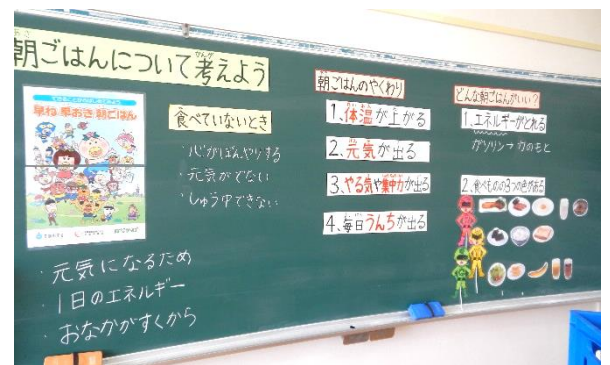 朝ごはんについて考えよう
早ね 早おき 朝ごはん
食べていないとき
・心がぼんやりする
・元気がでない
・しゅう中できない
・元気になるため
・1日のエネルギー
・おなかがすくから
朝ごはんのやくわり
1、体温が上がる
2、元気が出る
3、やる気や集中力が出る
4、毎日うんちが出る
どんな朝ごはんがいい?
1、エネルギーがとれる
ガソリン→力のもと
2、食べものの3つの色がある